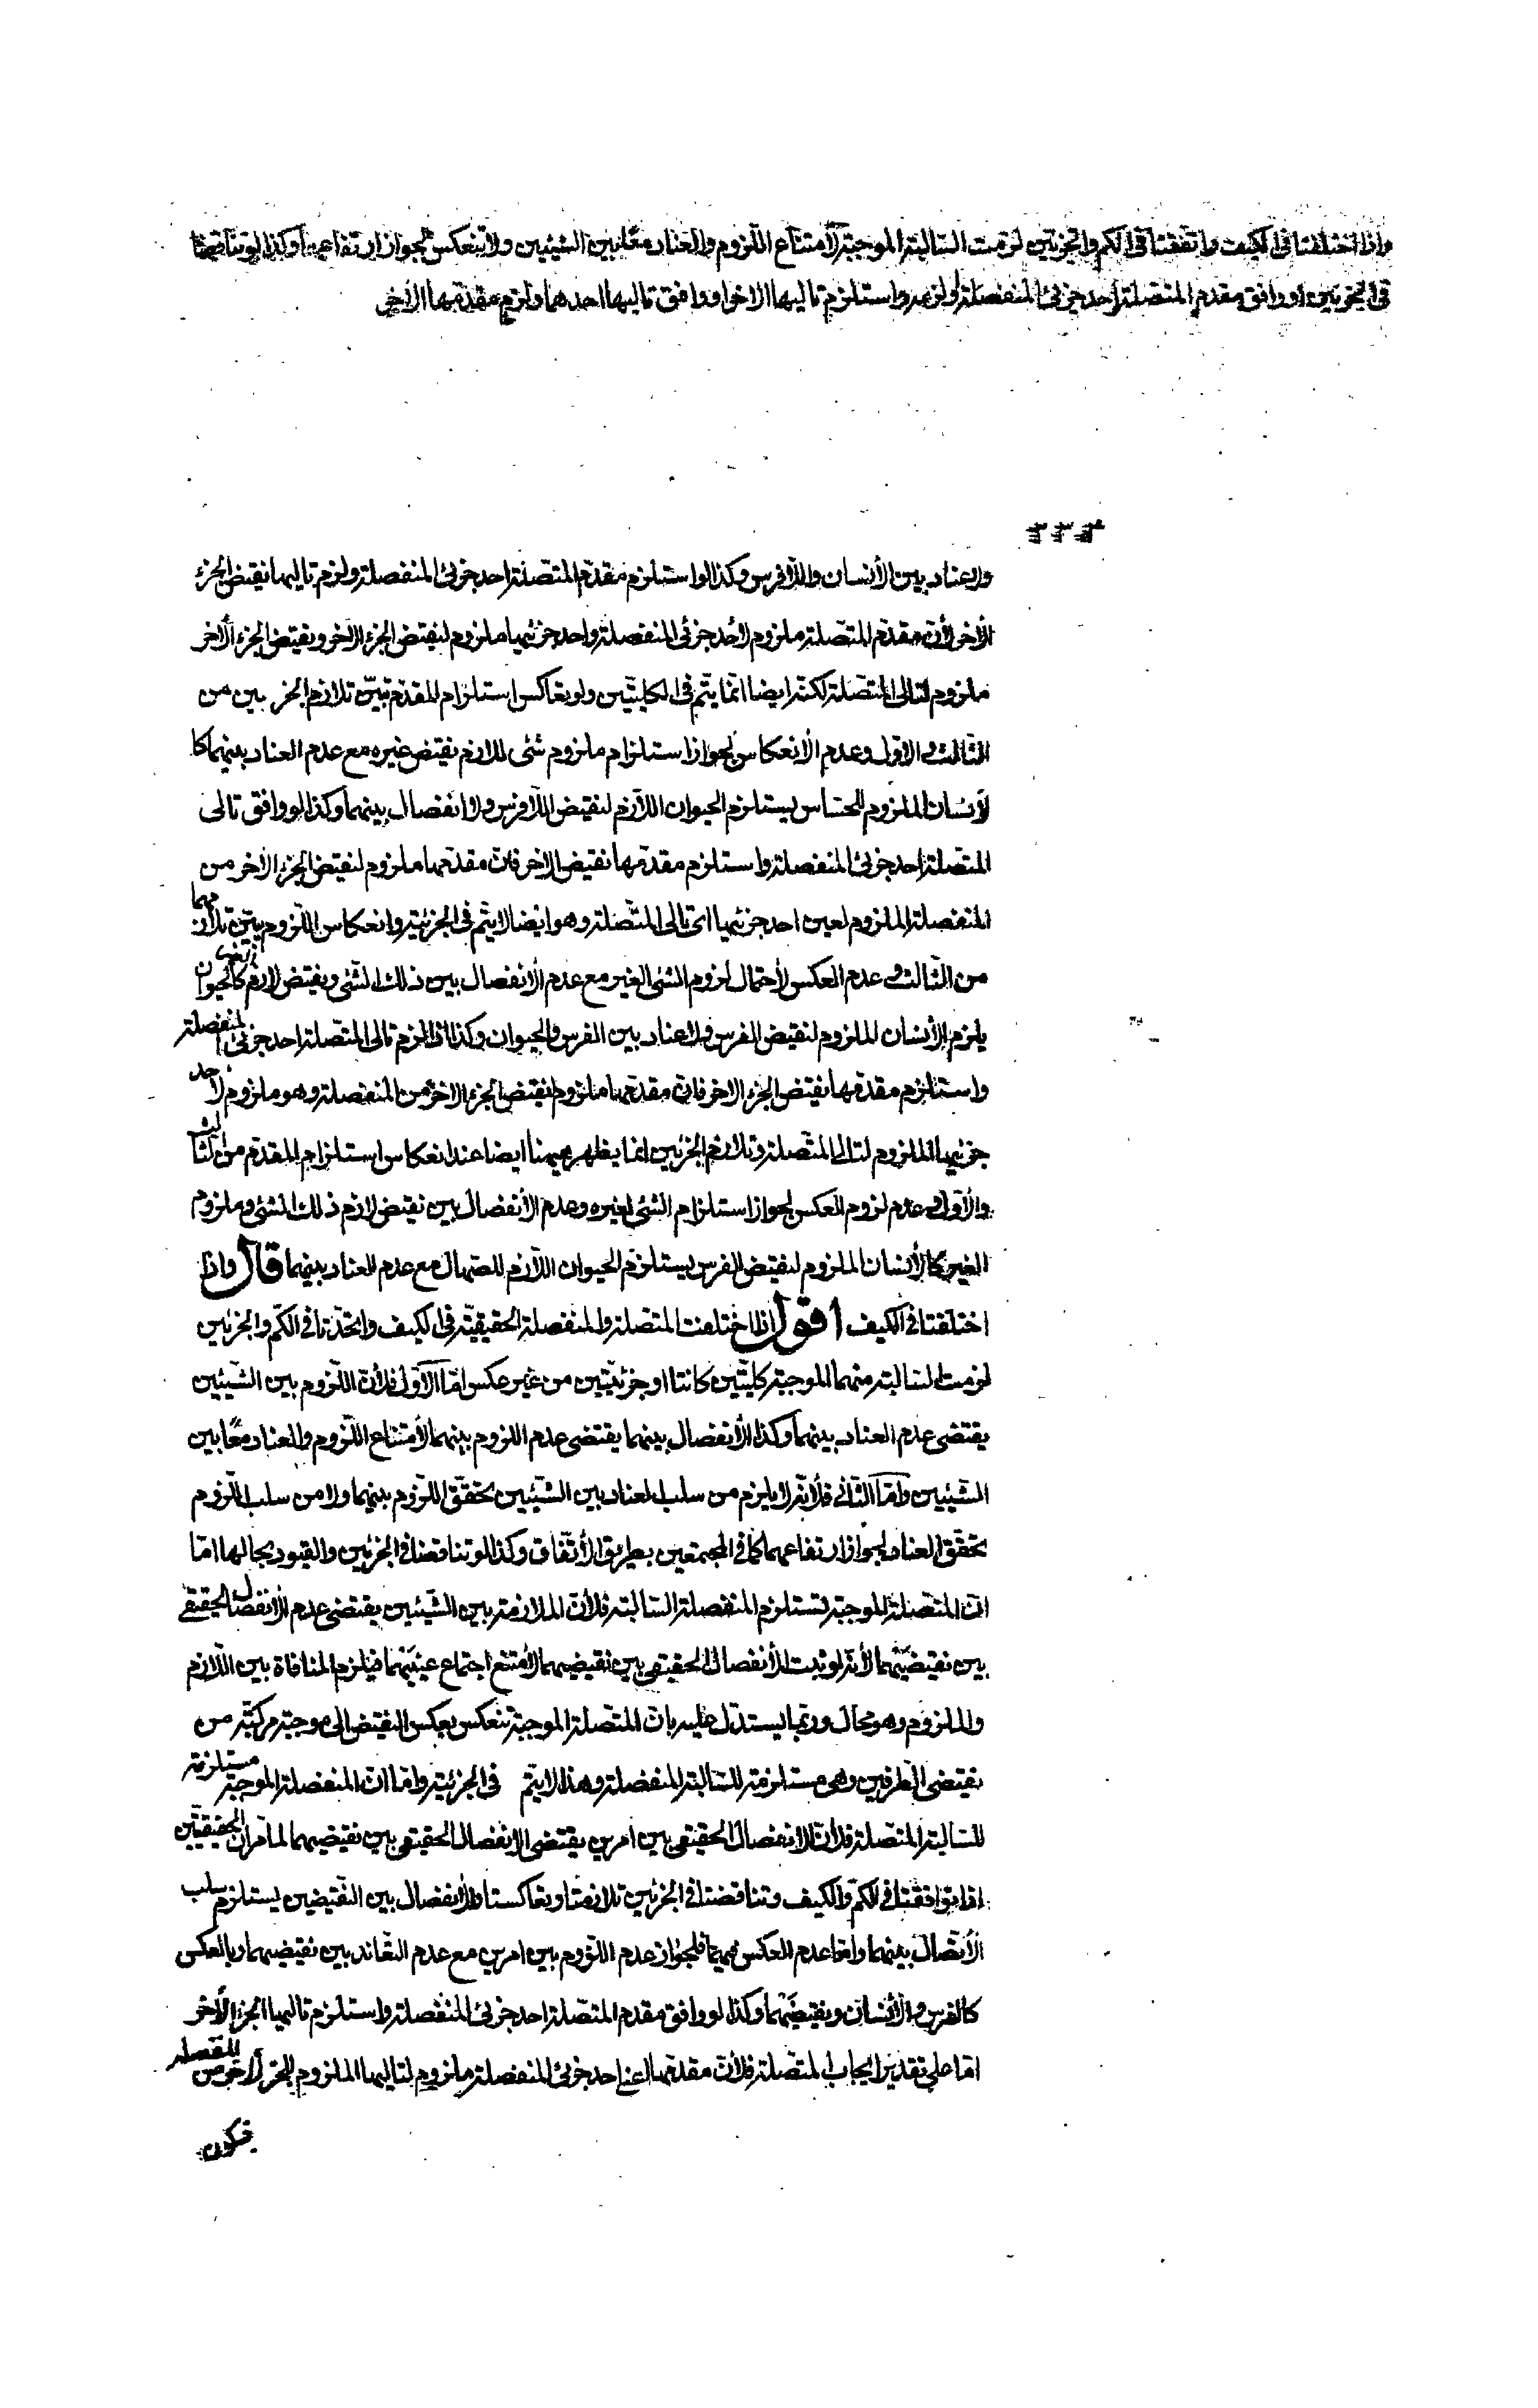 واذا اختلفتا في الكيف واتفقتا في الكم والجزئين لزمت السالبة الموجبة لامتناع اللزوم والعناد معًا بين الشيئين ولا تنعكس لجواز ارتفاعهما وكذا لو تناقضتا
في الجزئين او وافق مقدم المتصلة احد جزئى المنفصلة ولزمه واستلزم تاليها الاخر او وافق تاليها احدهما ولزم مقدمها الاخر
والعناد بين الأنسان واللافرس وكذا لو استلزم مقدم المتصلة احد جزئى المنفصلة ولزم تاليها نقيض الجزء
الأخر لأن مقدم المتصلة ملزوم لأحد جزئى المنفصلة واحد جزئيها ملزوم لنقيض الجزء الاخر ونقيض الجزء الأخر
ملزوم لتالى المتصلة لكنه ايضا انما يتم في الكليتين ولو تعاكس استلزام المقدم تبين تلازم الجزئين من
الثالث والاول وعدم الأنعكاس لجواز استلزام ملزوم شئ للازم نقيض غيره مع عدم العناد بينهما كا
لأنسان الملزوم للحساس يستلزم الحيوان اللازم لنقيض اللافرس ولا انفصال بينهما وكذا لو وافق تالى
المتصلة احد جزئى المنفصلة واستلزم مقدمها نقيض الاخر فان مقدمها ملزوم لنقيض الجزء الاخر من
المنفصلة الملزوم لعين احد جزئيها اى تالى المتصلة وهو ايضا لا يتم في الجزئية وانعكاس اللزوم يبين تلازمهما
من الثالث وعدم العكس لأحتمال لزوم الشئ الغير مع عدم الأنفصال بين ذلك الشئ ونقيض لازم الغير كالحيوان
يلزم الأنسان الملزوم لنقيض الفرس ولا عناد بين الفرس والحيوان وكذا اذا لزم تالى المتصلة احد جزئى المنفصلة
واستلزم مقدمها نقيض الجزء الاخر فان مقدمها ملزوم لنقيض الجزء الاخر من المنفصلة وهو ملزوم لأحد
جزئيها الملزوم لتالى المتصلة وتلازم الجزئين انما يظهر ههنا ايضا عند انعكاس استلزام المقدم من الثالث
والأول وعدم لزوم العكس لجواز استلزام الشئ لغيره وعدم الأنفصال بين نقيض لازم ذلك الشئ وملزوم
الغير كالأنسان الملزوم لنقيض الفرس يستلزم الحيوان اللازم للصهال مع عدم العناد بينهما قال واذا
اختلفتا في الكيف اقول اذا اختلفت المتصلة والمنفصلة الحقيقية في الكيف واتحدتا في الكم والجزئين
لزمت السالبة منهما الموجبة كليتين كانتا او جزئيتين من غير عكس اما الأول فلأن اللزوم بين الشيئين
يقتضى عدم العناد بينهما وكذا الأنفصال بينهما يقتضى عدم اللزوم بينهما لأمتناع اللزوم والعناد معًا بين
الشيئين واما الثانى فلأنه لا يلزم من سلب العناد بين الشيئين تحقق اللزوم بينهما ولا من سلب اللزوم
تحقق العناد لجواز ارتفاعهما كما في المجتمعين بطريق الأتفاق وكذا لو تناقضتا في الجزئين والقيود بحالها اما
ان المتصلة الموجبة تستلزم المنفصلة السالبة فلأن الملازمة بين الشيئين يقتضى عدم الأنفصال الحقيقى
بين نقيضيهما لأنه لو ثبت الأنفصال الحقيقى بين نقيضيهما لأمتنع اجتماع عينيهما فيلزم المنافاة بين اللازم
والملزوم وهو محال وربما يستدل عليه بان المتصلة الموجبة تنعكس بعكس النقيض الى موجبة مركبة من
نقيضى الطرفين وهى مستلزمة للسالبة المنفصلة وهذا لا يتم في الجزئية واما ان المنفصلة الموجبة مستلزمة
للسالبة المتصلة فلأن الانفصال الحقيقى بين امرين يقتضى الانفصال الحقيقى بين نقيضيهما لما مر ان الحقيقيتين
اذا توافقتا في الكم والكيف وتناقضتا في الجزئين تلازمتا وتعاكستا والأنفصال بين النقيضين يستلزم سلب
الأتصال بينهما واما عدم العكس فيهما فلجواز عدم اللزوم بين امرين مع عدم التعاند بين نقيضيهما وبالعكس
كالفرس والأنسان ونقيضيهما وكذا لو وافق مقدم المتصلة احد جزئى المنفصلة واستلزم تاليها الجزء الأخر
اما على تقدير ايجاب المتصلة فلأن مقدمها اعنى احد جزئى المنفصلة ملزوم لتاليها الملزوم للجزء الأخر من المنفصلة
فيكون